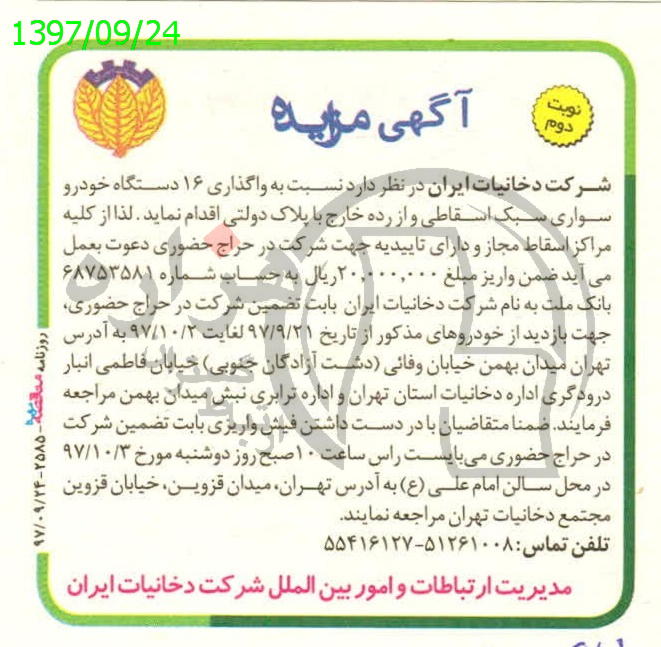 1397/09/24
آگهی مزایده
نوبت
دوم
شرکت دخانیات ایران در نظر دارد نسبت به واگذاری ۱۶ دستگاه خودرو
سواری سبک اسقاطی و از رده خارج با پلاک دولتی اقدام نماید. لذا از کلیه
مراکز اسقاط مجاز و دارای تاییدیه جهت شرکت در حراج حضوری دعوت بعمل
می آید ضمن واریز مبلغ ۲۰,۰۰۰,۰۰۰ریال به حساب شماره ۶۸۷۵۳۵۸۱
بانک ملت به نام شرکت دخانیات ایران بابت تضمین شرکت در حراج حضوری،
جهت بازدید از خودروهای مذکور از تاریخ ۹۷/۹/۲۱ لغایت ۹۷/۱۰/۲ به آدرس
تهران میدان بهمن خیابان وفائی (دشت آزادگان جنوبی) خیابان فاطمی انبار
درودگری اداره دخانیات استان تهران و اداره ترابری نبش میدان بهمن مراجعه
فرمایند. ضمنا متقاضیان با در دست داشتن فیش واریزی بابت تضمین شرکت
در حراج حضوری می‌بایست راس ساعت ۱۰صبح روز دوشنبه مورخ ۹۷/۱۰/۳
در محل سالن امام علی (ع) به آدرس تهران، میدان قزوین، خیابان قزوین
مجتمع دخانیات تهران مراجعه نمایند.
تلفن تماس: ۵۱۲۶۱۰۰۸-۵۵۴۱۶۱۲۷
مدیریت ارتباطات و امور بین الملل شرکت دخانیات ایران
روزنامه مناقصه مزایده - ۲۵۸۵-۹۷/۰۹/۲۴
هزاره